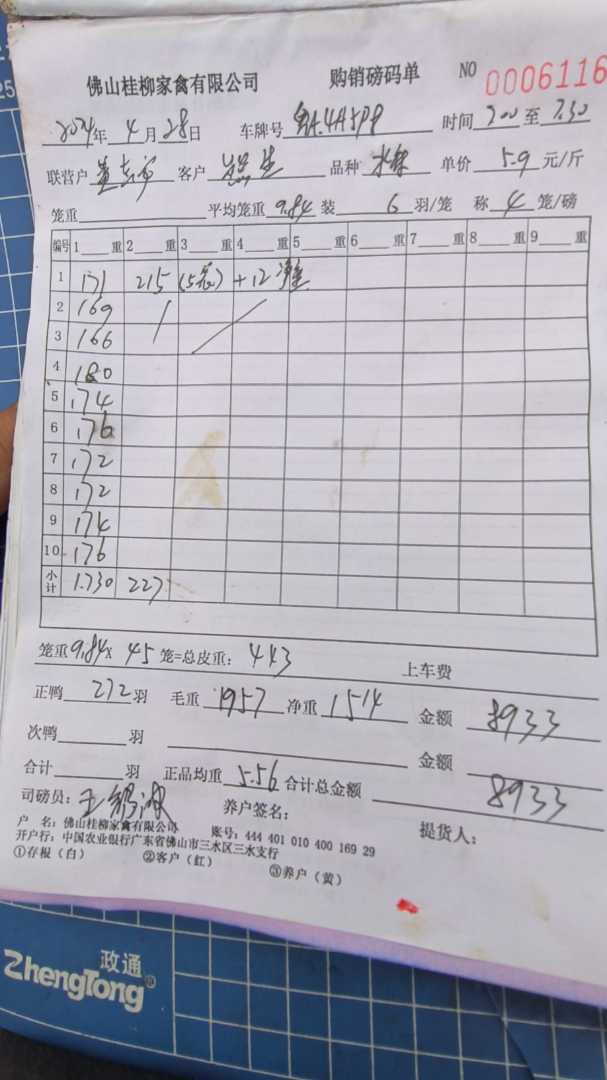 佛山桂柳家禽有限公司 购销磅码单 NO 0006116
2024年 4月28日 车牌号 时间 7.00 至 7.30
联营户 客户 品种 单价 5.9 元/斤
笼重 平均笼重 9.84 装 6 羽/笼 称 4 笼/磅
编号 1 重 2 重 3 重 4 重 5 重 6 重 7 重 8 重 9 重
1 171 215 (5笼) + 12
2 169
3 166
4 180
5 174
6 176
7 172
8 172
9 174
10 176
小计 1.730 227
笼重 9.84 x 45 笼=总皮重: 443 上车费
正鸭 272 羽 毛重 1957 净重 1514 金额 8933
次鸭 羽 金额
合计 羽 正品均重 5.56 合计总金额 8933
司磅员: 养户签名: 提货人:
户 名: 佛山桂柳家禽有限公司 账号: 444 401 010 400 169 29
开户行: 中国农业银行广东省佛山市三水区三水支行
①存根(白) ②客户(红) ③养户(黄)
政通
ZhengTong®